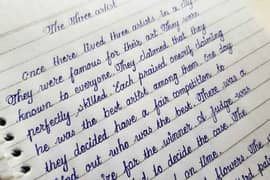 The three artist
Once there lived three artists in a city
They were famous for their art They were
known to everyone. They claimed that they
perfectly skilled. Each praised oneself claiming
he was the best artist among them. One day
they decided have a fair competition to
out who was the best. There was a
for the winner. A judge was
to decide the case. The
on time.
flowers. The